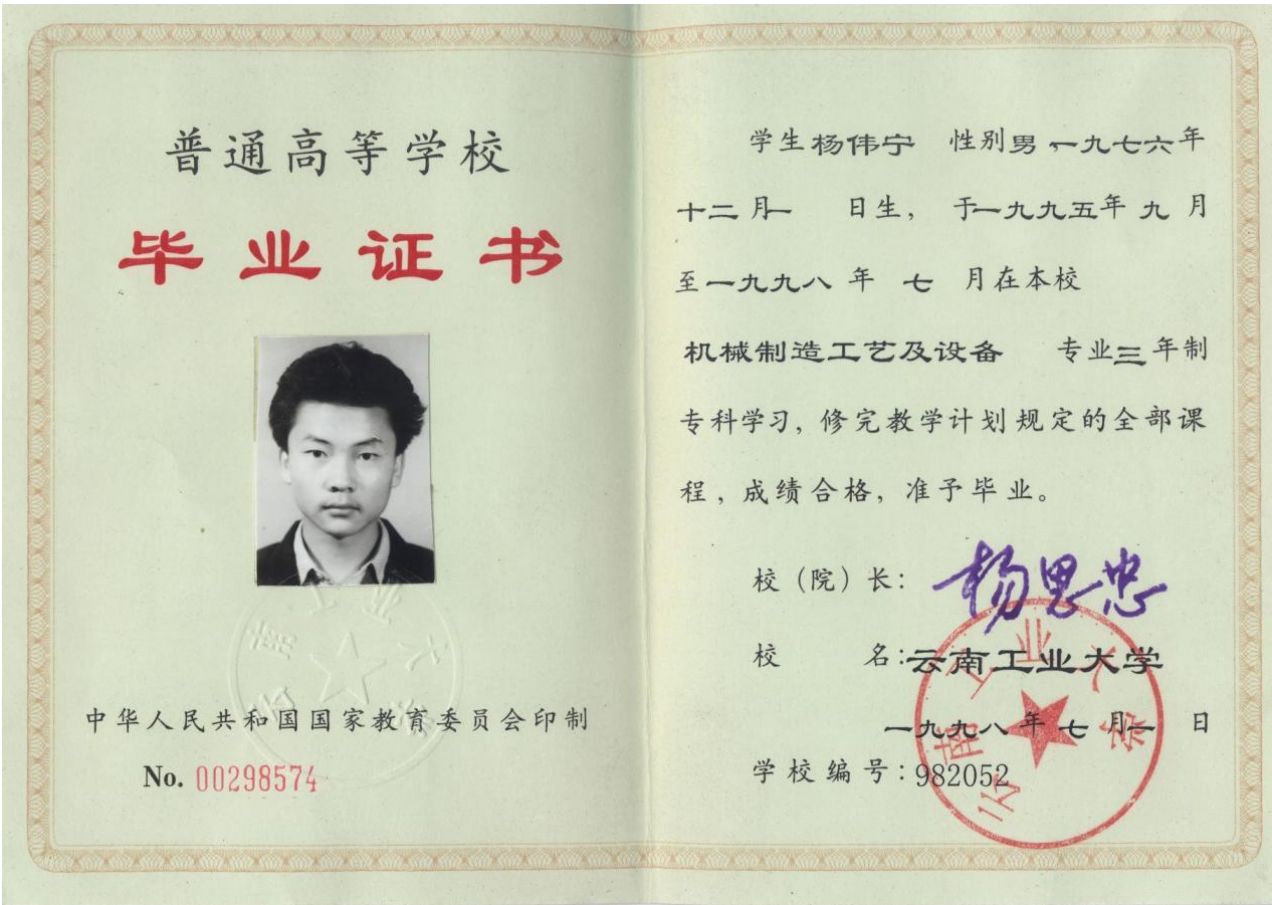 普通高等学校
毕业证书
云南工业大学
中华人民共和国国家教育委员会印制
No. 00298574
学生杨伟宁 性别男,一九七六年
十二月一 日生, 于一九九五年九月
至一九九八年 七 月在本校
机械制造工艺及设备 专业三年制
专科学习, 修完教学计划规定的全部课
程, 成绩合格, 准予毕业。
校(院)长: 杨思忠
校 名:云南工业大学
一九九八年七月一 日
学校编号:982052
云南工业大学